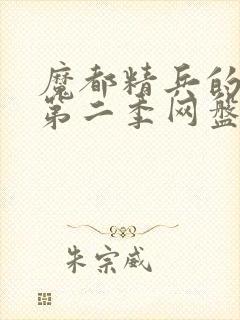 魔都精兵的
第二季网盘
朱宗威